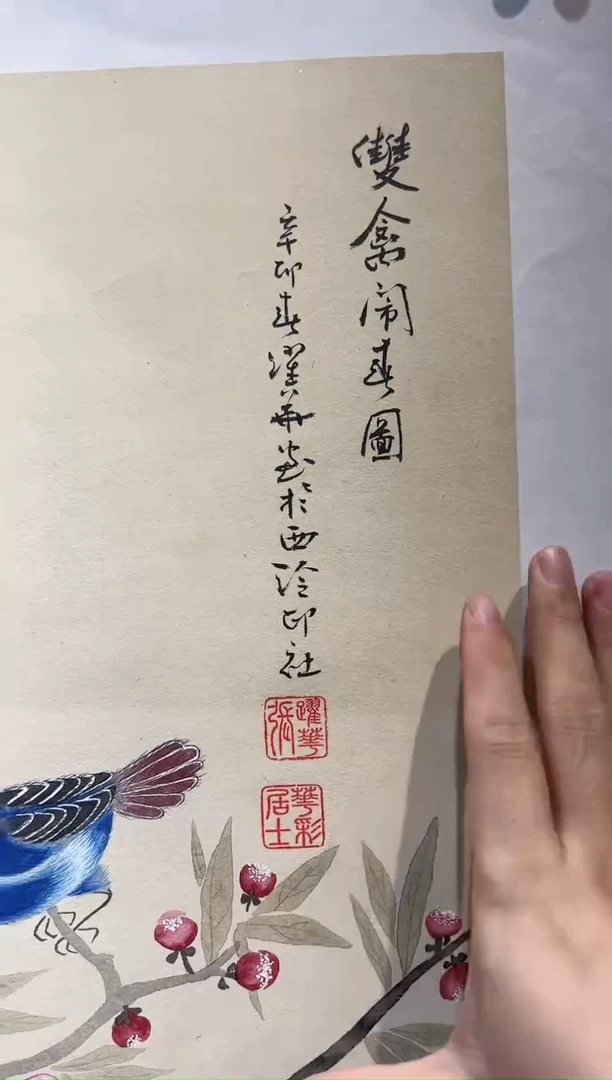 雙禽闹春圖
辛卯春濯華寫於西泠印社
張躍華
華彩居士